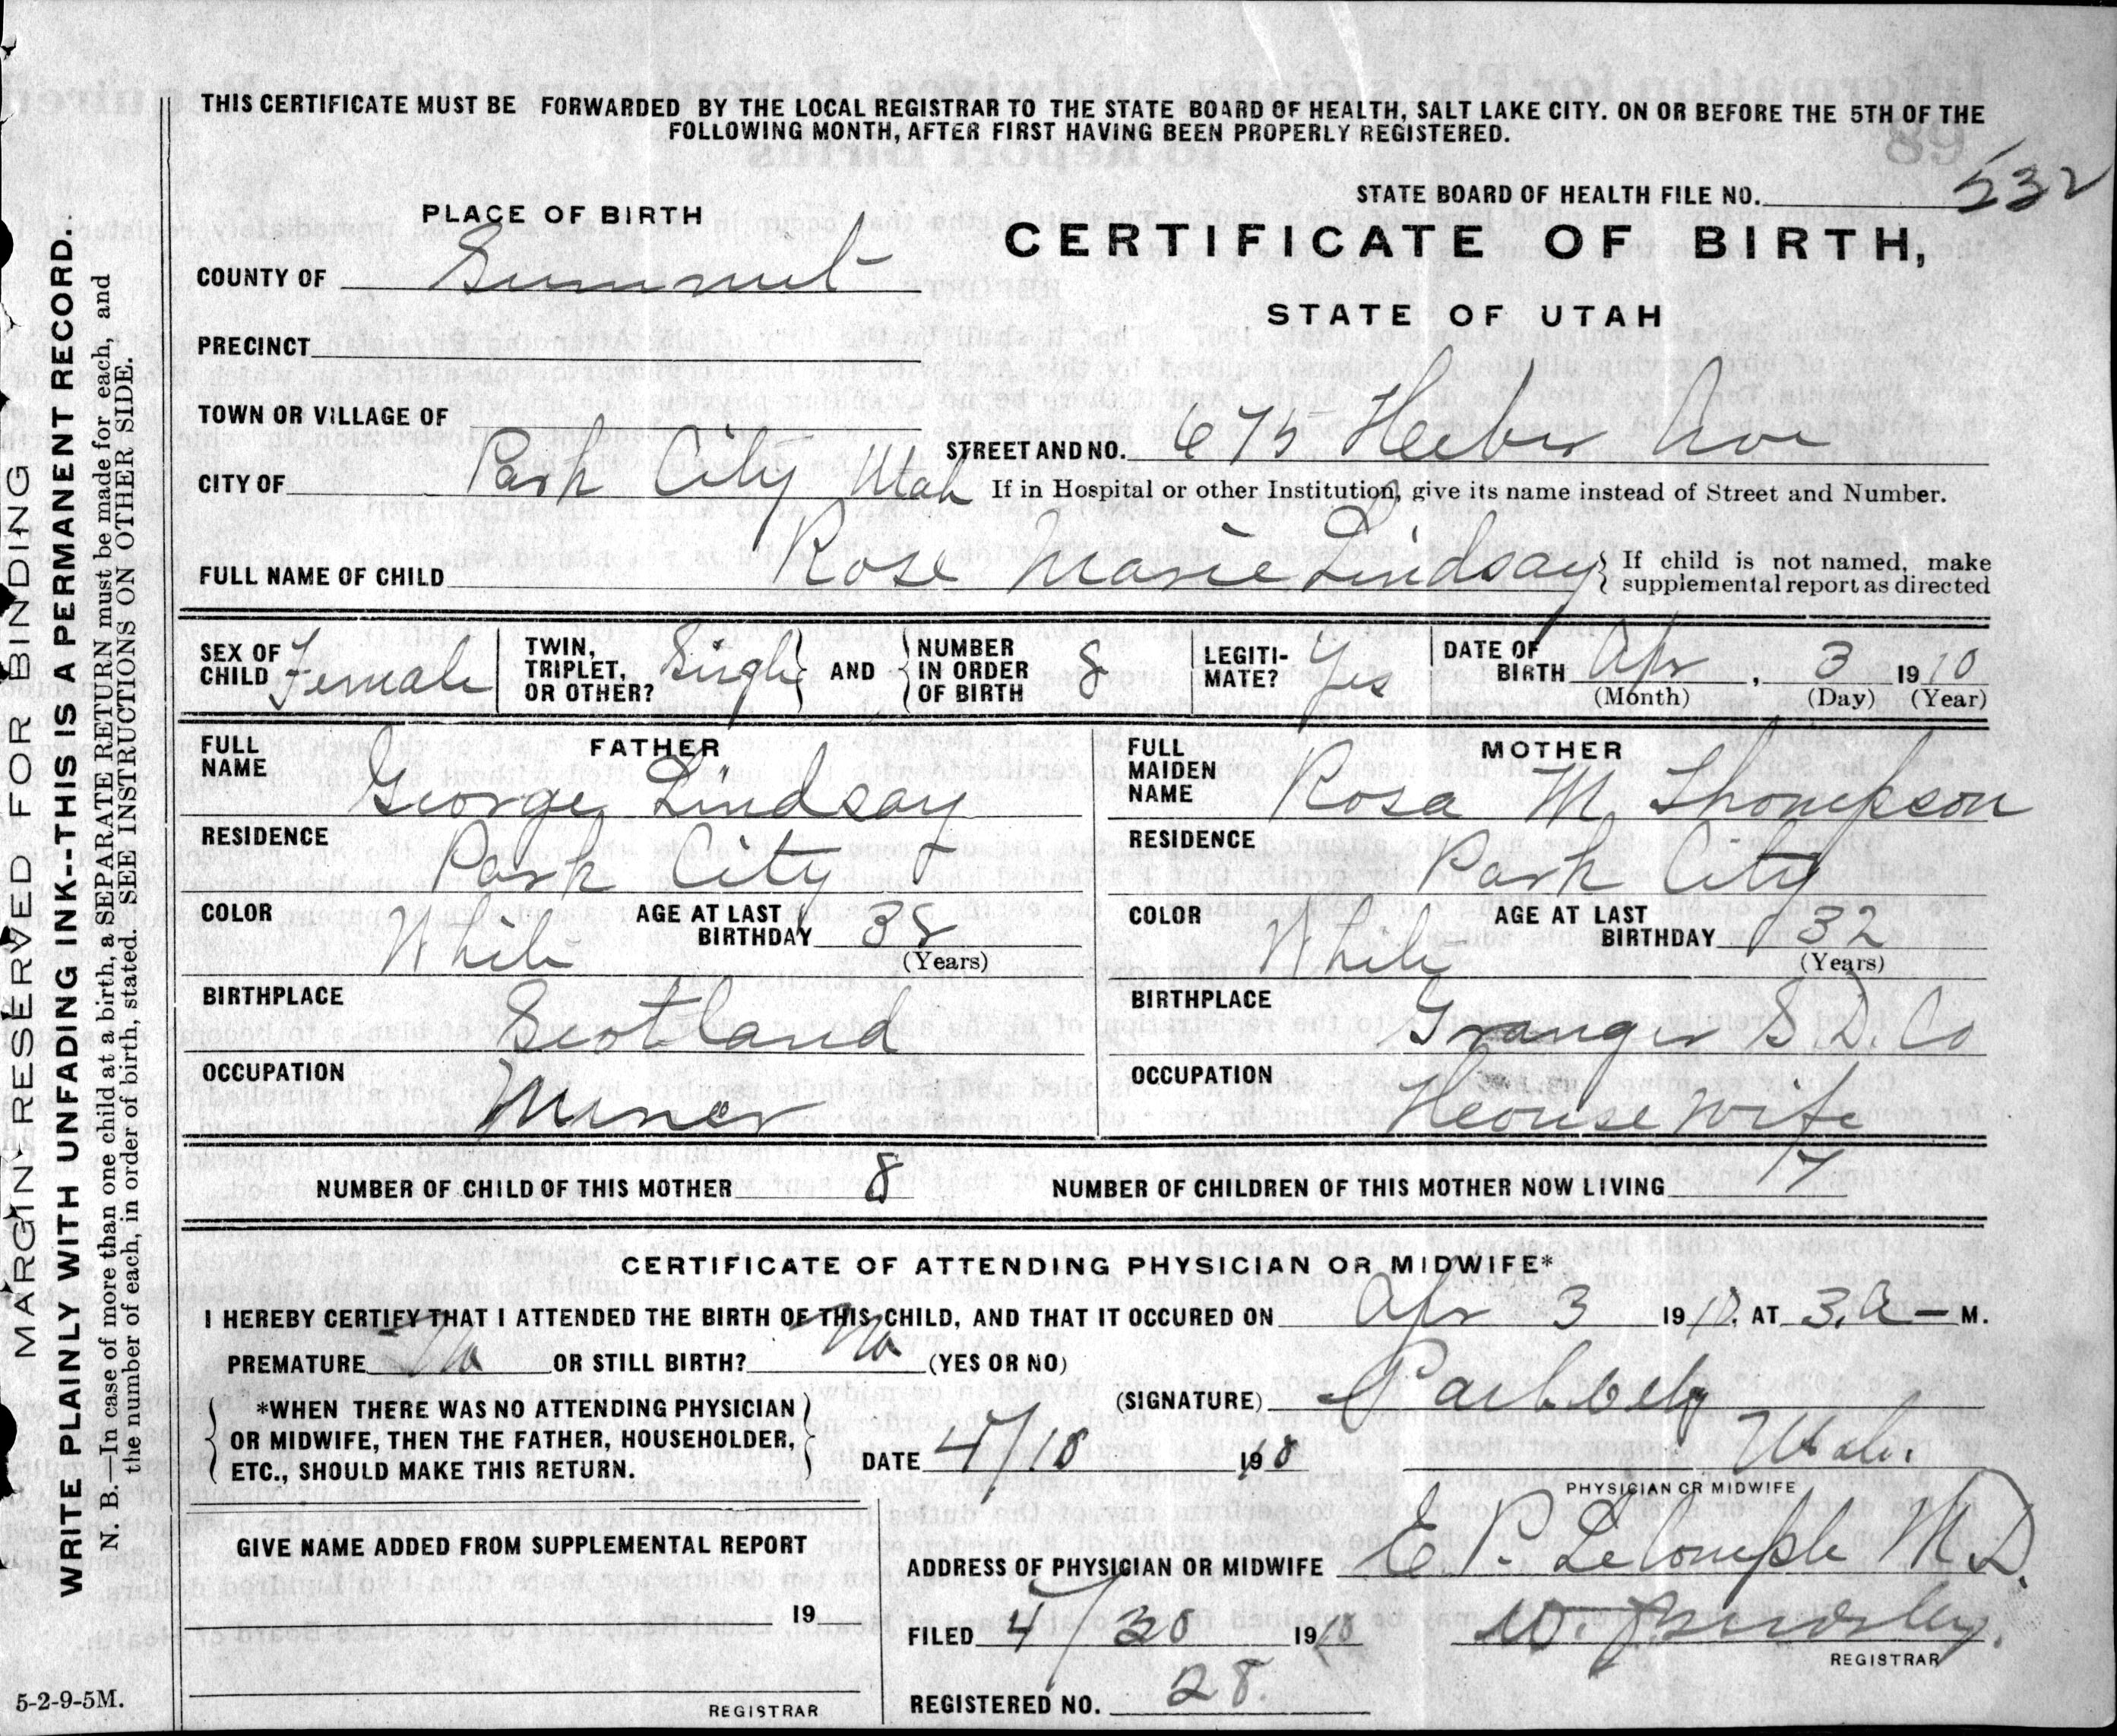 THIS CERTIFICATE MUST BE FORWARDED BY THE LOCAL REGISTRAR TO THE STATE BOARD OF HEALTH, SALT LAKE CITY. ON OR BEFORE THE 5TH OF THE
FOLLOWING MONTH, AFTER FIRST HAVING BEEN PROPERLY REGISTERED.
STATE BOARD OF HEALTH FILE NO. 532
PLACE OF BIRTH
CERTIFICATE OF BIRTH,
COUNTY OF Summit
STATE OF UTAH
PRECINCT
TOWN OR VILLAGE OF
STREET AND NO. 675 Heber Ave
CITY OF Park City Utah
If in Hospital or other Institution, give its name instead of Street and Number.
FULL NAME OF CHILD Rose Marie Lindsay { If child is not named, make
supplemental report as directed
SEX OF CHILD Female
TWIN, TRIPLET, OR OTHER? Single } AND { NUMBER IN ORDER OF BIRTH 8
LEGITI-MATE? Yes
DATE OF BIRTH Apr, 3 1910
(Month) (Day) (Year)
FATHER
FULL NAME George Lindsay
RESIDENCE Park City
COLOR White AGE AT LAST BIRTHDAY 38
(Years)
BIRTHPLACE Scotland
OCCUPATION Miner
MOTHER
FULL MAIDEN NAME Rosa M Thompson
RESIDENCE Park City
COLOR White AGE AT LAST BIRTHDAY 32
(Years)
BIRTHPLACE Granger S.L. Co
OCCUPATION House wife
NUMBER OF CHILD OF THIS MOTHER 8 NUMBER OF CHILDREN OF THIS MOTHER NOW LIVING 7
CERTIFICATE OF ATTENDING PHYSICIAN OR MIDWIFE*
I HEREBY CERTIFY THAT I ATTENDED THE BIRTH OF THIS CHILD, AND THAT IT OCCURED ON Apr 3 1910, AT 3.A — M.
PREMATURE No OR STILL BIRTH? No (YES OR NO)
*WHEN THERE WAS NO ATTENDING PHYSICIAN
OR MIDWIFE, THEN THE FATHER, HOUSEHOLDER,
ETC., SHOULD MAKE THIS RETURN.
(SIGNATURE) Park City
DATE 4/10 1910 Utah.
PHYSICIAN OR MIDWIFE
GIVE NAME ADDED FROM SUPPLEMENTAL REPORT
19
REGISTRAR
ADDRESS OF PHYSICIAN OR MIDWIFE E P. LeCompte M.D.
FILED 4/30 1910
REGISTRAR
REGISTERED NO. 28.
MARGIN RESERVED FOR BINDING
WRITE PLAINLY WITH UNFADING INK--THIS IS A PERMANENT RECORD.
N. B.—In case of more than one child at a birth, a SEPARATE RETURN must be made for each, and
the number of each, in order of birth, stated. SEE INSTRUCTIONS ON OTHER SIDE.
5-2-9-5M.